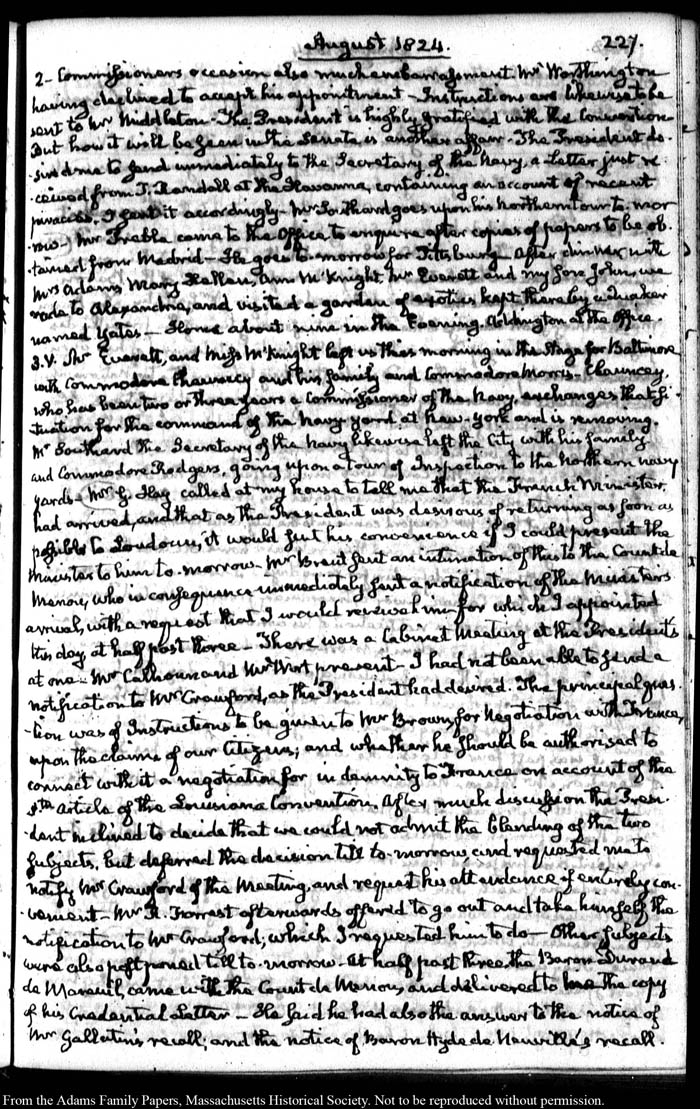 August 1824.
227.
2- Commissioners occasion also much embarrassment. Mr Worthington
having declined to accept his appointment - Instructions are likewise to be
sent to Mr Middleton - The President is highly gratified with the Convention
But how it will be seen in the Senate is another affair - The President de-
-sired me to send immediately to the Secretary of the Navy, a Letter just re-
-ceived from T. Randall at the Havanna, containing an account of recent
piracies. I sent it accordingly - Mr Southard goes upon his northern tour to-mor-
row - Mr Preble came to the Office to enquire after copies of papers to be ob-
-tained from Madrid - He goes to-morrow for Pittsburg - After dinner with
Mrs Adams, Mary Hellen, Ann McKnight Mr Everett and my Son John, we
rode to Alexandria, and visited a garden of exotics kept there by a Quaker
named Yates - Home about nine in the Evening. Addington at the Office.
3. V. Mr Everett, and Miss McKnight left us this morning in the Stage for Baltimore
with Commodore Chauncey and his family and Commodore Morris - Chauncey,
who has been two or three years a Commissioner of the Navy, exchanges that si-
-tuation for the command of the Navy yard at New-York and is removing.
Mr Southard the Secretary of the Navy likewise left the City with his family
and Commodore Rodgers, going upon a tour of Inspection to the northern navy
yards - Mr G. Hay called at my house to tell me that the French Minister,
had arrived, and that as the President was desirous of returning as soon as
possible to Loudoun, it would suit his convenience if I could present the
Minister to him to-morrow. Mr Brent sent an intimation of this to the Count de
Menou, who in consequence immediately sent a notification of the Minister's
arrival, with a request that I would receive him, for which I appointed
this day, at half past three - There was a Cabinet Meeting at the President's
at one - Mr Calhoun and Mr Wirt present - I had not been able to send a
notification to Mr Crawford, as the President had desired. The principal ques-
-tion was of Instructions to be given to Mr Brown, for Negotiation with France,
upon the claims of our Citizens; and whether he should be authorised to
connect with it a negotiation for indemnity to France on account of the
8th Article of the Louisiana Convention. After much discussion the Presi-
-dent inclined to decide that we could not admit the blending of the two
subjects, but deferred the decision till to-morrow, and requested me to
notify Mr Crawford of the Meeting, and request his attendance if entirely con-
-venient - Mr R. Forrest afterwards offered to go out and take himself the
notification to Mr Crawford; which I requested him to do - Other subjects
were also postponed till to-morrow - At half past three the Baron Durand
de Mareuil, came with the Count de Menou, and delivered to me the copy
of his Credential Letter - He said he had also the answer to the notice of
Mr Gallatin's recall; and the notice of Baron Hyde de Neuville's recall.
From the Adams Family Papers, Massachusetts Historical Society. Not to be reproduced without permission.